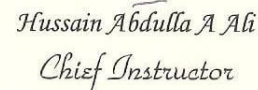 Hussain Abdulla A Ali
Chief Instructor